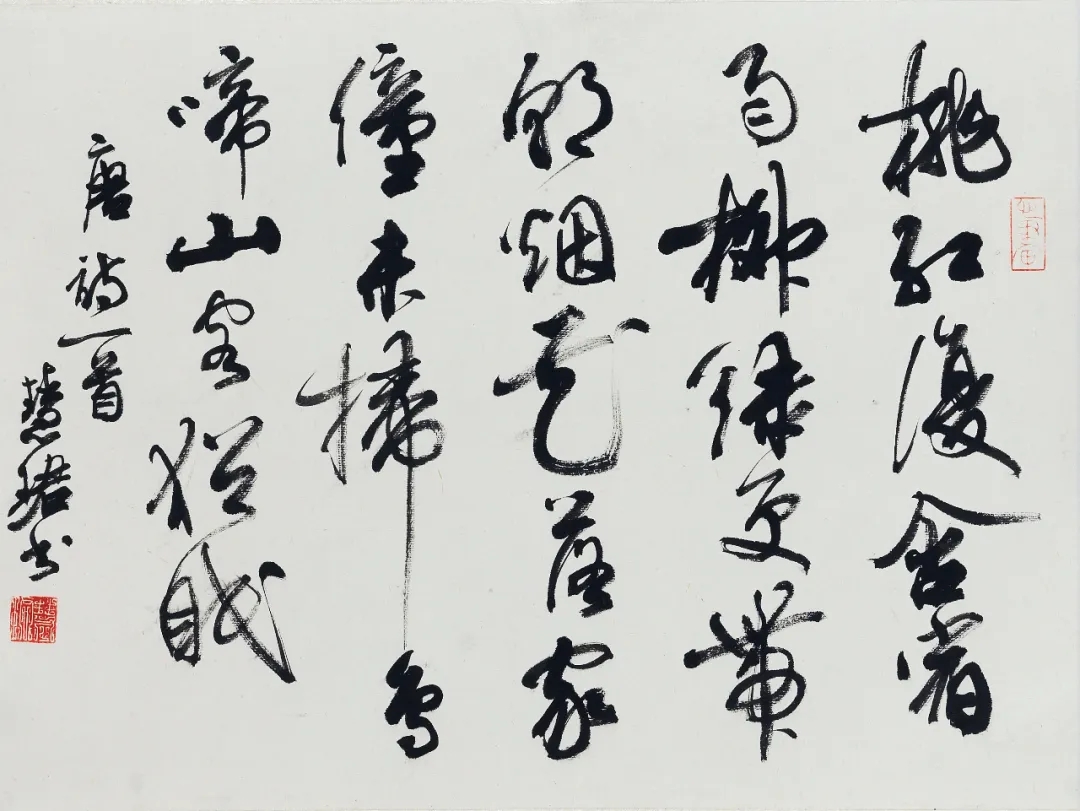 桃红復含宿
雨柳绿更帶
朝烟花落家
僮未掃鸟
啼山客猶眠
唐诗一首
慧珺书